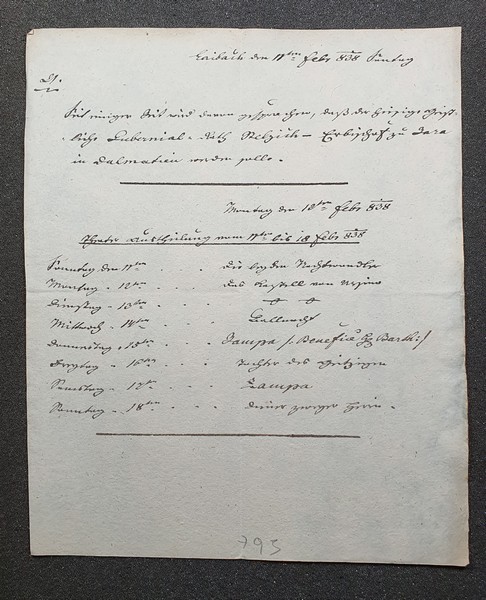 Laibach den 11ten Febr 838 Sonntag
21.
Seit einiger Zeit wird davon gesprochen, daß der hiesige geist-
liche Gubernial-Rath Erzbischof zu Zara
in Dalmatien werden solle.
Montag den 12ten Febr 838
Theater Austheilung vom 11ten bis 18 Febr 838
Sonntag den 11ten . . . die beyden Nachtwandler
Montag - 12ten . . . das Kastell von
Dienstag - 13ten . . .
Mittwoch - 14ten . . . Ballnacht
Donnerstag - 15ten . . . Zampa /: Benefiz Barth :/
Freytag - 16ten . . . Tochter des Geitzigen
Samstag - 17ten . . . Zampa
Sonntag - 18ten . . . Diener zweyer Herrn.
795